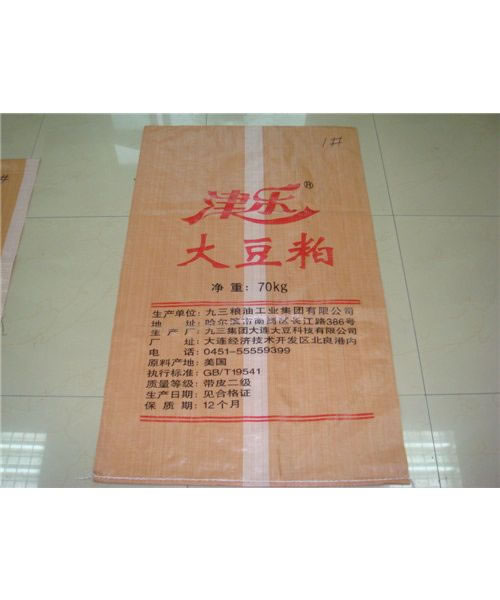 1#
津乐®
大豆粕
净 重：70kg
生产单位：九三粮油工业集团有限公司
地 址：哈尔滨市南岗区长江路386号
生 产 厂：九三集团大连大豆科技有限公司
厂 址：大连经济技术开发区北良港内
电 话：0451-55559399
原料产地：美国
执行标准：GB/T19541
质量等级：带皮二级
生产日期：见合格证
保 质 期：12个月